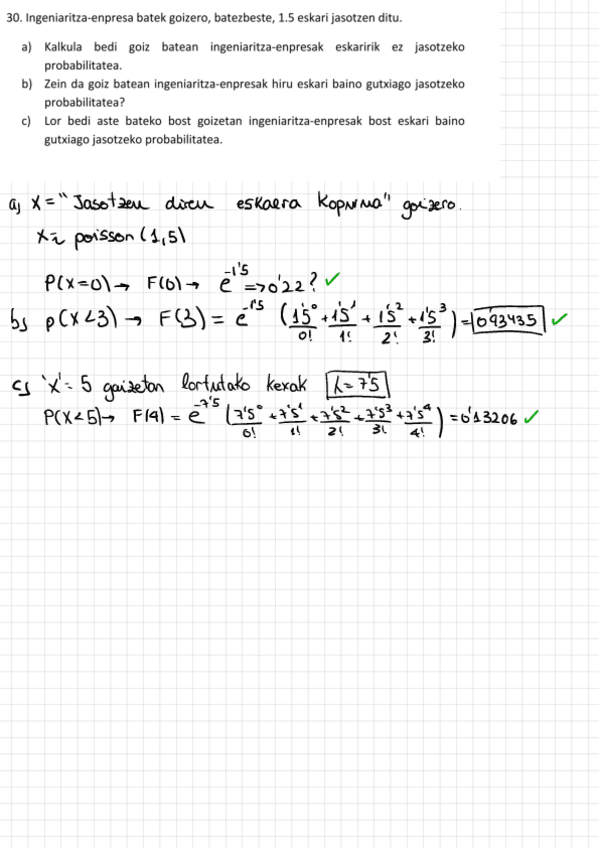 30. Ingeniaritza-enpresa batek goizero, batezbeste, 1.5 eskari jasotzen ditu.
a) Kalkula bedi goiz batean ingeniaritza-enpresak eskaririk ez jasotzeko
probabilitatea.
b) Zein da goiz batean ingeniaritza-enpresak hiru eskari baino gutxiago jasotzeko
probabilitatea?
c) Lor bedi aste bateko bost goizetan ingeniaritza-enpresak bost eskari baino
gutxiago jasotzeko probabilitatea.
a) X = "Jasotzen diren eskaera kopurua" goizero.
X ~ poisson (1,5)
P(X=0) → F(0) → e^-1'5 => 0'22? ✓
b) p(X<3) → F(3) = e^-1'5 (1'5^0/0! + 1'5^1/1! + 1'5^2/2! + 1'5^3/3!) = 0'93435 ✓
c) 'X' = 5 goizetan lortutako kexak λ = 7'5
P(X<5) → F(4) = e^-7'5 (7'5^0/0! + 7'5^1/1! + 7'5^2/2! + 7'5^3/3! + 7'5^4/4!) = 0'13206 ✓